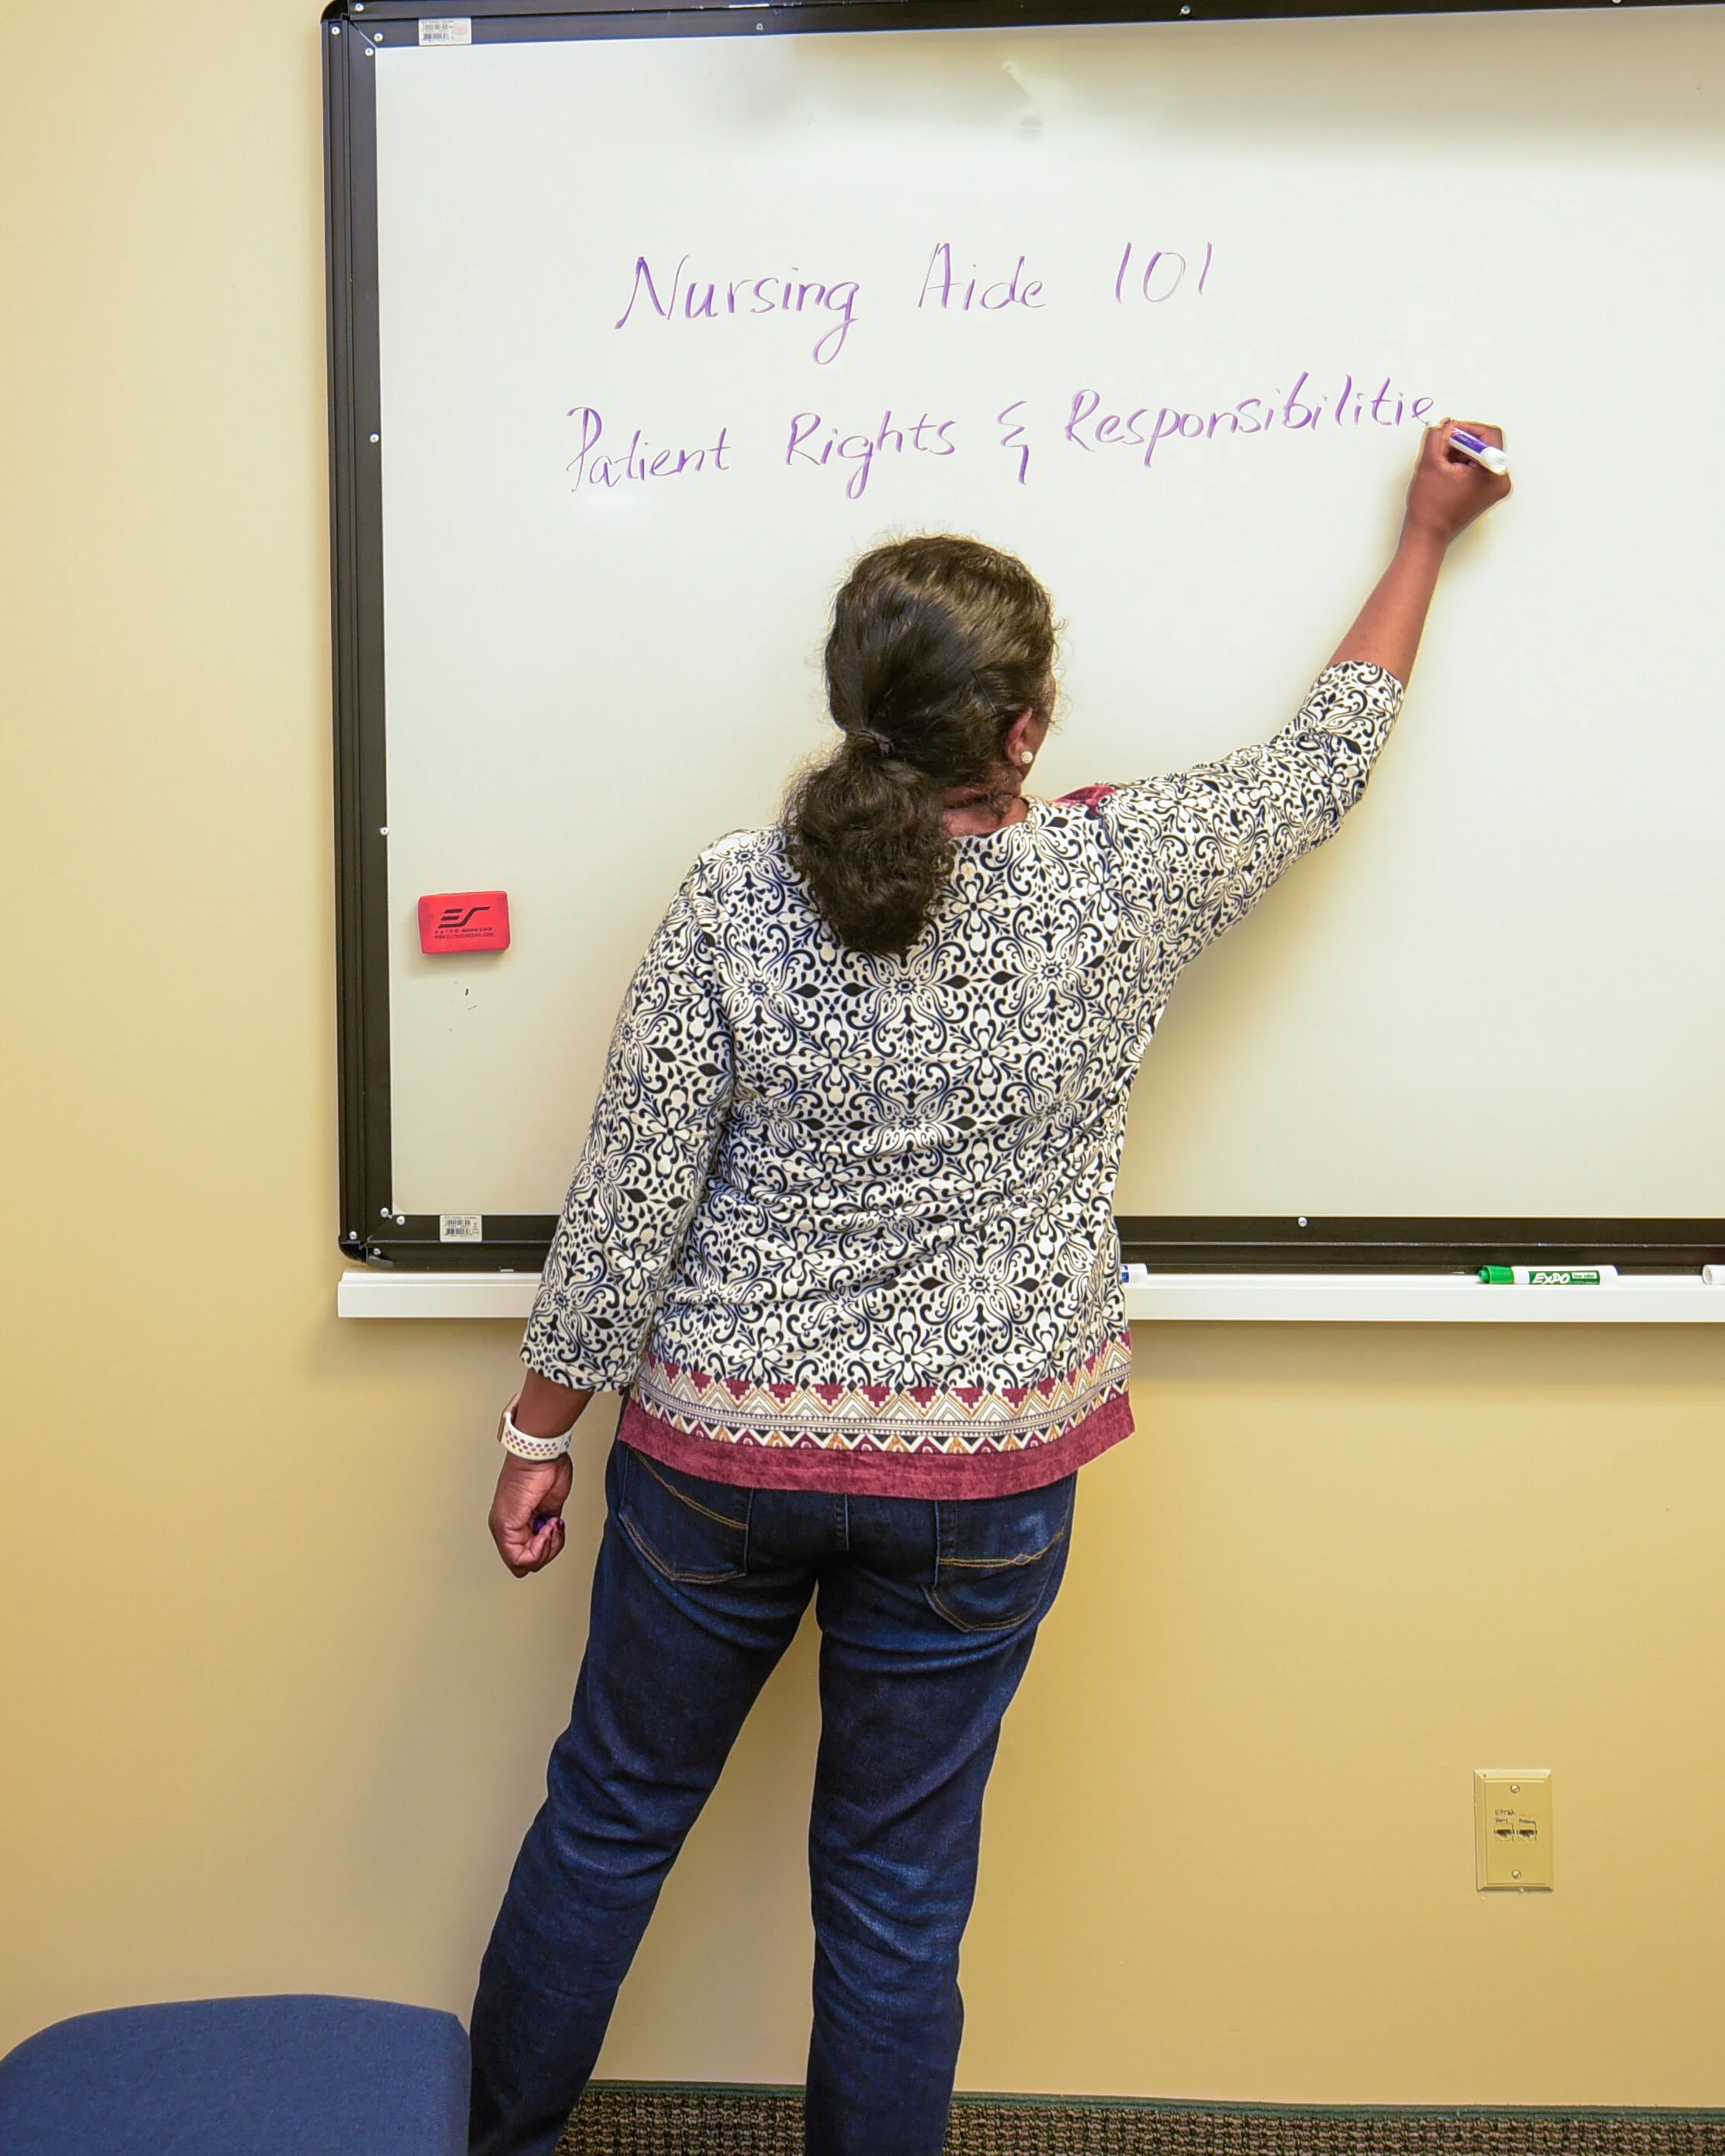 Nursing Aide 101
Patient Rights & Responsibilitie
ES
ELITE SCREENS
EXPO